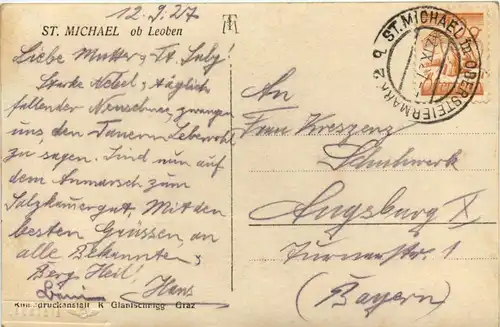 12.9.27
ST. MICHAEL ob Leoben
Liebe Mutter
Starke Nebel, täglich
fallender Neuschnee, zwangen
uns den Tauern Lebewohl
zu sagen. Sind nun auf
dem Anmarsch zum
Salzkammergut. Mit den
besten Grüssen, an
alle Bekannten,
Berg Heil!
Hans
Kunstdruckanstalt K Glantschnigg Graz
ST. MICHAEL in OBERSTEIERMARK
An
Frau Kreszenz
Schuhwerk
Augsburg X
Turnerstr.
(Bayern)